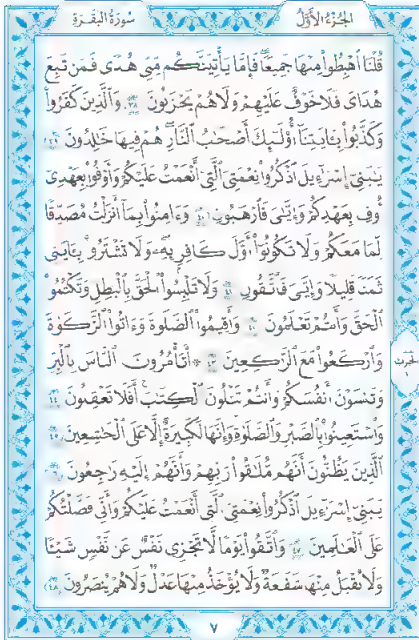 الجُزءُ الأَوَّلُ
سُورَةُ البَقَرَةِ
قُلْنَا ٱهْبِطُوا۟ مِنْهَا جَمِيعًۭا فَإِمَّا يَأْتِيَنَّكُم مِّنِّى هُدًۭى فَمَن تَبِعَ
هُدَاىَ فَلَا خَوْفٌ عَلَيْهِمْ وَلَا هُمْ يَحْزَنُونَ ٣٨ وَٱلَّذِينَ كَفَرُوا۟
وَكَذَّبُوا۟ بِـَٔايَـٰتِنَآ أُو۟لَـٰٓئِكَ أَصْحَـٰبُ ٱلنَّارِ هُمْ فِيهَا خَـٰلِدُونَ ٣٩
يَـٰبَنِىٓ إِسْرَٰٓءِيلَ ٱذْكُرُوا۟ نِعْمَتِىَ ٱلَّتِىٓ أَنْعَمْتُ عَلَيْكُمْ وَأَوْفُوا۟ بِعَهْدِىٓ
أُوفِ بِعَهْدِكُمْ وَإِيَّـٰىَ فَٱرْهَبُونِ ٤٠ وَءَامِنُوا۟ بِمَآ أَنزَلْتُ مُصَدِّقًۭا
لِّمَا مَعَكُمْ وَلَا تَكُونُوٓا۟ أَوَّلَ كَافِرٍۭ بِهِۦ وَلَا تَشْتَرُوا۟ بِـَٔايَـٰتِى
ثَمَنًۭا قَلِيلًۭا وَإِيَّـٰىَ فَٱتَّقُونِ ٤١ وَلَا تَلْبِسُوا۟ ٱلْحَقَّ بِٱلْبَـٰطِلِ وَتَكْتُمُوا۟
ٱلْحَقَّ وَأَنتُمْ تَعْلَمُونَ ٤٢ وَأَقِيمُوا۟ ٱلصَّلَوٰةَ وَءَاتُوا۟ ٱلزَّكَوٰةَ
وَٱرْكَعُوا۟ مَعَ ٱلرَّٰكِعِينَ ٤٣ ۞ أَتَأْمُرُونَ ٱلنَّاسَ بِٱلْبِرِّ
وَتَنسَوْنَ أَنفُسَكُمْ وَأَنتُمْ تَتْلُونَ ٱلْكِتَـٰبَ أَفَلَا تَعْقِلُونَ ٤٤
وَٱسْتَعِينُوا۟ بِٱلصَّبْرِ وَٱلصَّلَوٰةِ وَإِنَّهَا لَكَبِيرَةٌ إِلَّا عَلَى ٱلْخَـٰشِعِينَ ٤٥
ٱلَّذِينَ يَظُنُّونَ أَنَّهُم مُّلَـٰقُوا۟ رَبِّهِمْ وَأَنَّهُمْ إِلَيْهِ رَٰجِعُونَ ٤٦
يَـٰبَنِىٓ إِسْرَٰٓءِيلَ ٱذْكُرُوا۟ نِعْمَتِىَ ٱلَّتِىٓ أَنْعَمْتُ عَلَيْكُمْ وَأَنِّى فَضَّلْتُكُمْ
عَلَى ٱلْعَـٰلَمِينَ ٤٧ وَٱتَّقُوا۟ يَوْمًۭا لَّا تَجْزِى نَفْسٌ عَن نَّفْسٍۢ شَيْـًۭٔا
وَلَا يُقْبَلُ مِنْهَا شَفَـٰعَةٌۭ وَلَا يُؤْخَذُ مِنْهَا عَدْلٌۭ وَلَا هُمْ يُنصَرُونَ ٤٨
٧